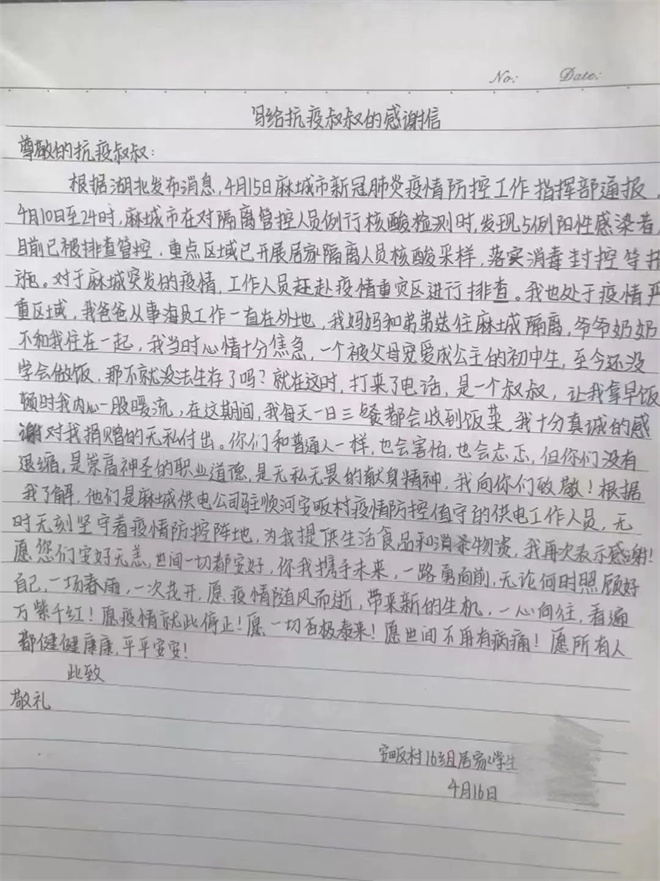 No:    Date:
写给抗疫叔叔的感谢信
尊敬的抗疫叔叔：
根据湖北发布消息，4月15日麻城市新冠肺炎疫情防控工作指挥部通报，
4月10日至24时，麻城市在对隔离管控人员例行核酸检测时，发现5例阳性感染者，
目前已被排查管控，重点区域已开展居家隔离人员核酸采样，落实消毒封控等措
施。对于麻城突发的疫情，工作人员赶赴疫情重灾区进行排查。我也处于疫情严
重区域，我爸爸从事海员工作一直在外地，我妈妈和弟弟送住麻城隔离，爷爷奶奶
不和我住在一起，我当时心情十分焦急，一个被父母宠爱成公主的初中生，至今还没
学会做饭，那不就没法生存了吗？就在这时，打来了电话，是一个叔叔，让我拿早饭
顿时我内心一股暖流，在这期间，我每天一日三餐都会收到饭菜，我十分真诚的感
谢对我捐赠的无私付出。你们和普通人一样，也会害怕，也会忐忑，但你们没有
退缩，是崇高神圣的职业道德，是无私无畏的献身精神，我向你们致敬！根据
我了解，他们是麻城供电公司驻顺河安畈村疫情防控值守的供电工作人员，无
时无刻坚守着疫情防控阵地，为我提供生活食品和消杀物资，我再次表示感谢！
愿您们安好无恙，世间一切都安好，你我携手未来，一路勇向前，无论何时照顾好
自己，一场春雨，一次花开，愿疫情随风而逝，带来新的生机，一心向往，看遍
万紫千红！愿疫情就此停止！愿一切否极泰来！愿世间不再有病痛！愿所有人
都健健康康，平平安安！
此致
敬礼
安畈村16组居家学生
4月16日